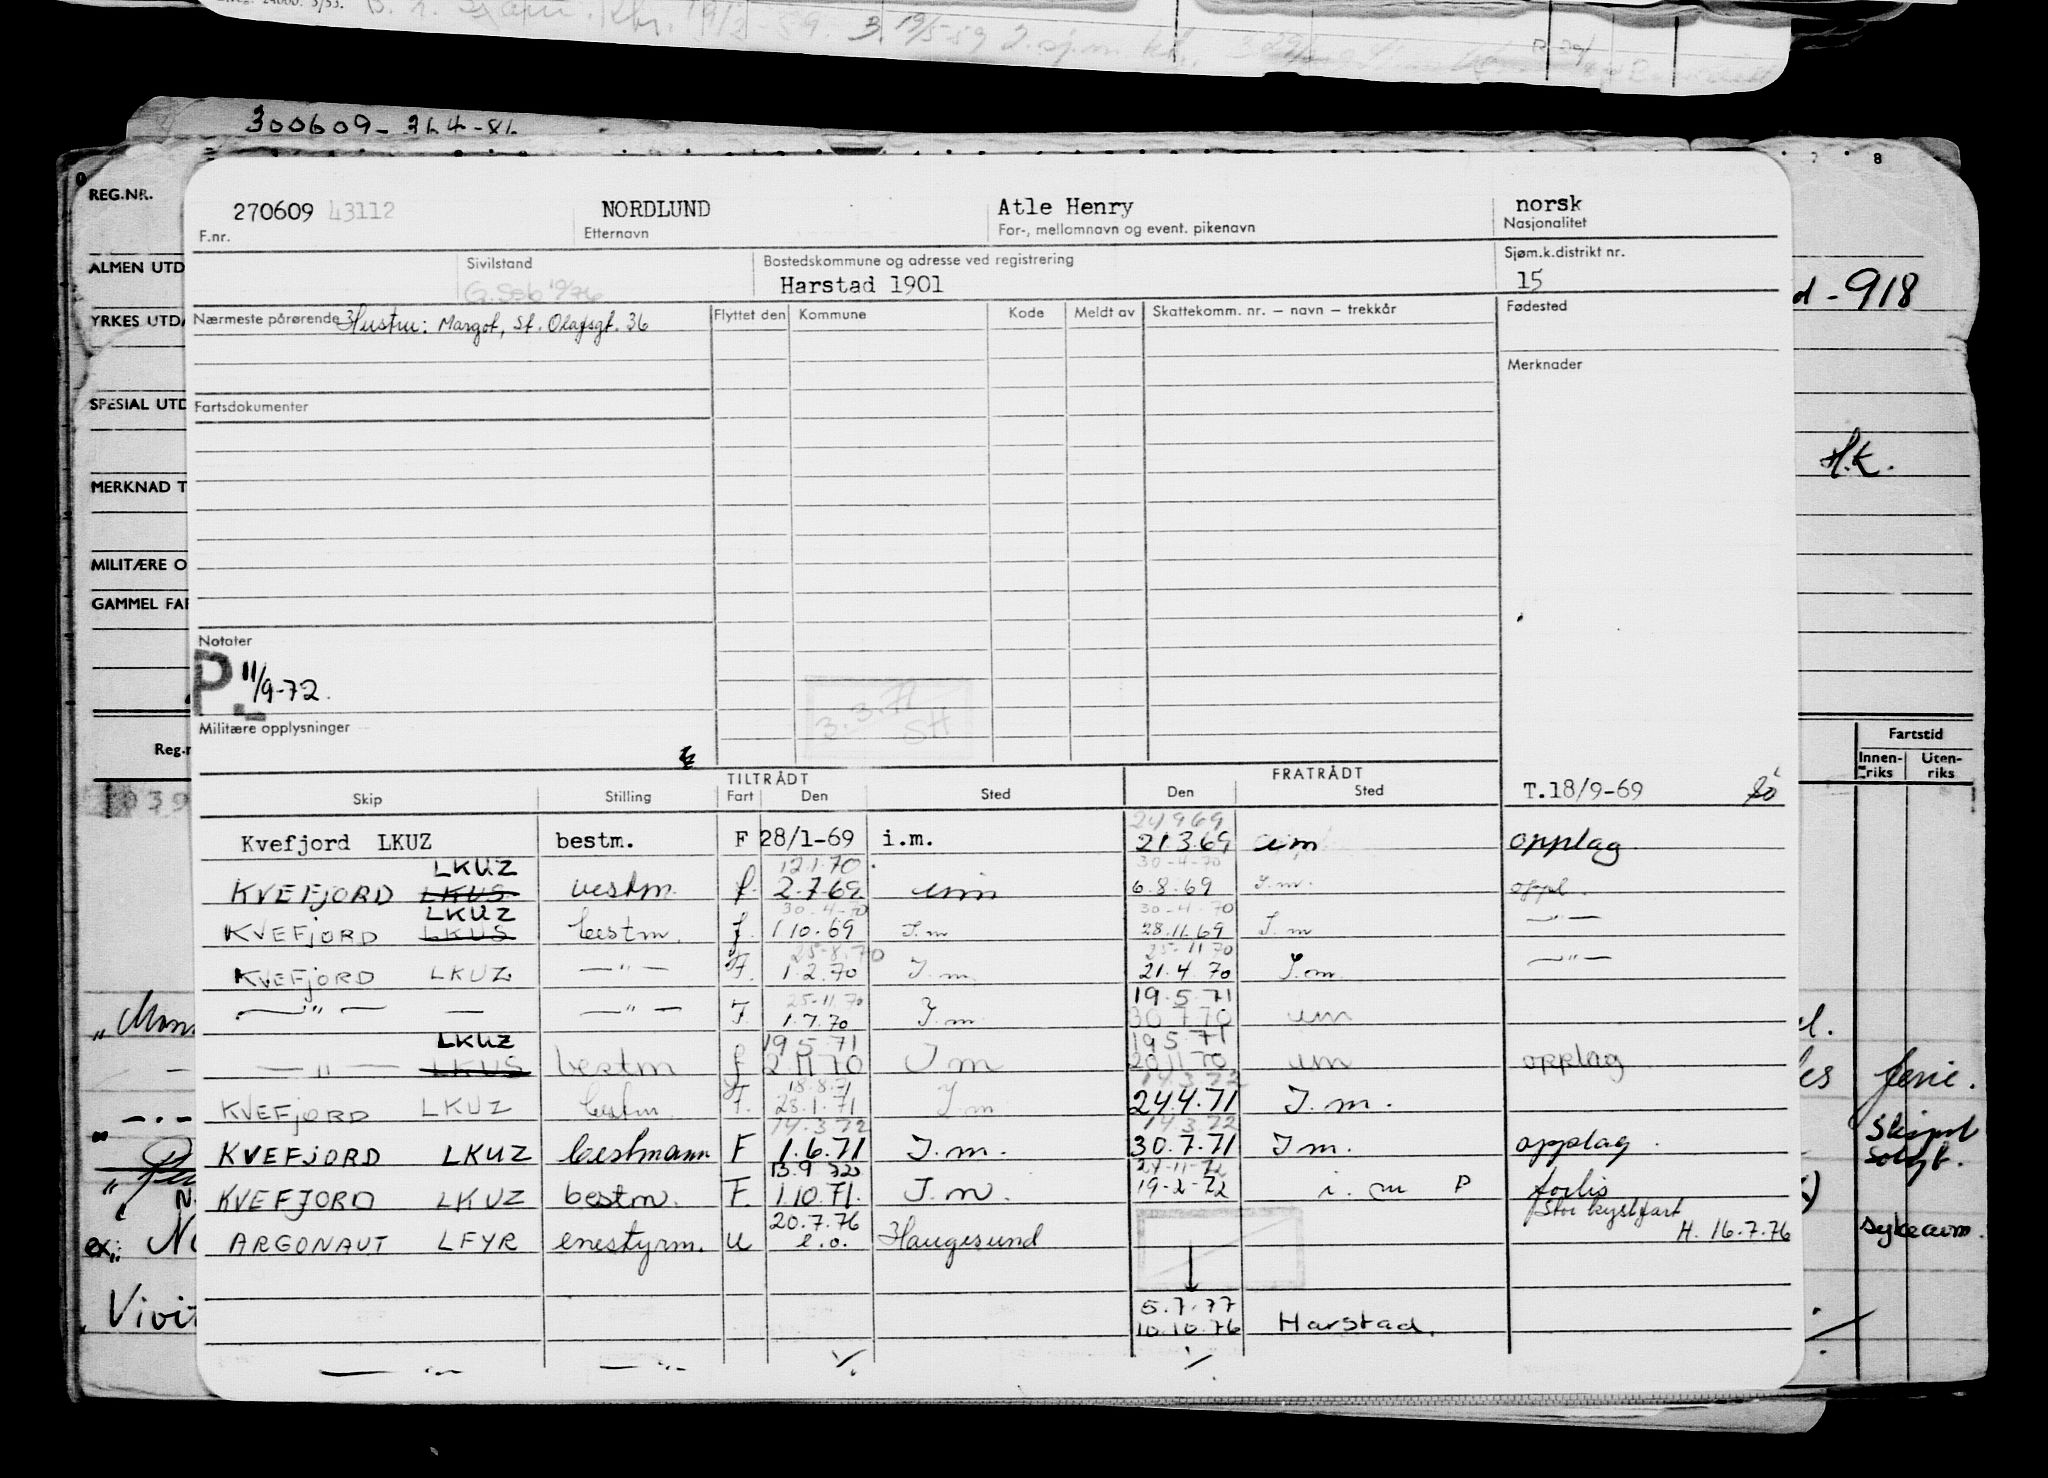 300609-
REG.NR.
7 8
270609 43112 NORDLUND Atle Henry norsk
F.nr. Etternavn For-, mellomnavn og event. pikenavn Nasjonalitet
ALMEN UTD
Sivilstand Bostedskommune og adresse ved registrering Sjøm.k.distrikt nr.
Harstad 1901 15
d-918
YRKES UTDA
Nærmeste pårørende Hustru: Margot, St. Olafsgt. 36 Flyttet den Kommune Kode Meldt av Skattekomm. nr. — navn — trekkår Fødested
Merknader
SPESIAL UTD Fartsdokumenter
H.K.
MERKNAD T
MILITÆRE O
GAMMEL FAR
Notater
P. 11/9-72.
3.3.71
SH
Militære opplysninger
Fartstid
Reg.n
Innen-riks Uten-riks
TILTRÅDT FRATRÅDT
Skip Stilling Fart Den Sted Den Sted T.18/9-69
24969
Kvefjord LKUZ bestm. F 28/1-69 i.m. 21.3.69 um opplag
LKUZ 12.1.70 30-4-70
KVEFJORD LKUS bestm. f. 2.7.69 um 6.8.69 I.m. oppl.
LKUZ 30-4-70 30-4-70
KVEFJORD LKUS bestm. f. 1.10.69 I.m 28.11.69 I.m —"—
25-8.70 25-11 70
KVEFJORD LKUZ —"— F. 1.2.70 I.m. 21.4.70 I.m. —"—
25-11.70 19.5.71
—"— — —"— F 1.7.70 I.m. 30.7.70 um
LKUZ 19 5 71 19 5 71
—"— LKUS bestm f 2.11 70 I m 20.11 70 um opplag
18.8.71 14.3.72
KVEFJORD LKUZ bestm. F. 28.1.71 I.m 24.4.71 I.m.
14.3.72 14.3.72
KVEFJORD LKUZ bestmann F 1.6.71 I.m. 30.7.71 I m. opplag.
13.9 72 27-11-72
KVEFJORD LKUZ bestm. F. 1.10.71. I.m. 19-2-72 i. m P forlis
Stor kystfart
20.7.76 H. 16.7.76
ARGONAUT LFYR enestyrm. U e.o. Haugesund
5.7.77
10.10.76 Harstad.
— " — — " — ./. ./.
ferie.
Skipet
solgt.
ex:
Vivit